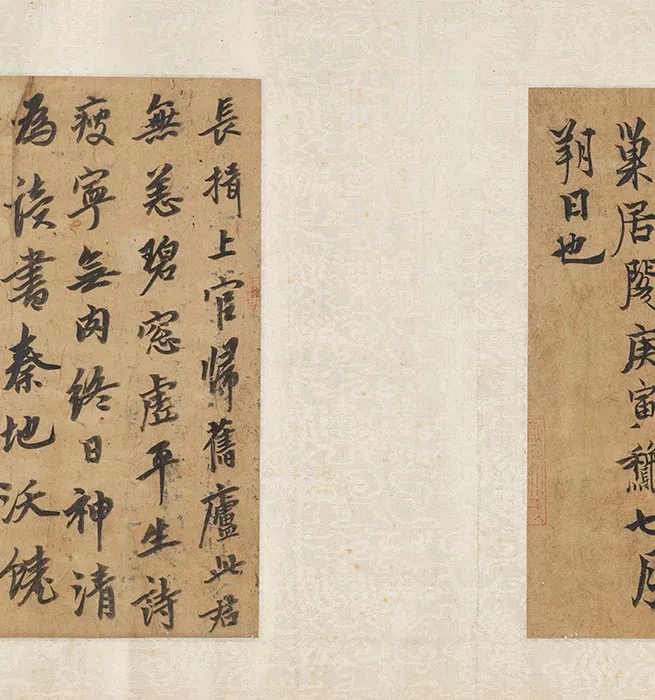 巢居閣庚寅龝七月
朔日也
長揖上官歸舊廬此君
無恙碧窓虛平生詩
瘦寧無肉終日神清
為讀書秦地沃饒